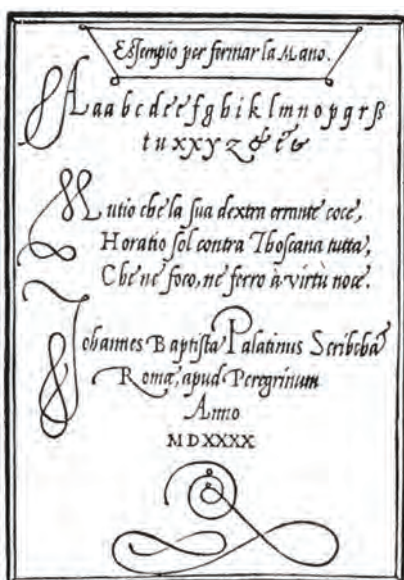 Essempio per fermar la Mano.
A a a b c d e e f g h i k l m n o p q r ß
t u x x y z & & &
Mutio che la sua dextra errante coce,
Horatio sol contra Thoscana tutta,
Che né foco, né ferro à virtù noce.
Johannes Baptista Palatinus Scribeba
Romæ, apud Peregrinum
Anno
MDXXXX